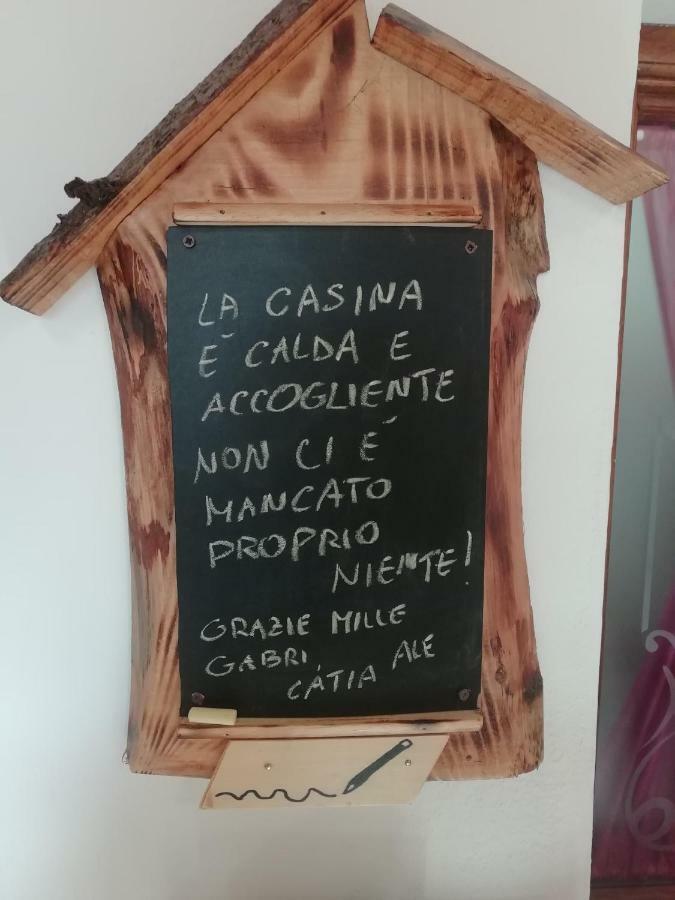 LA CASINA
È CALDA E
ACCOGLIENTE
NON CI È
MANCATO
PROPRIO
NIENTE!
GRAZIE MILLE
GABRI, ALE
CATIA